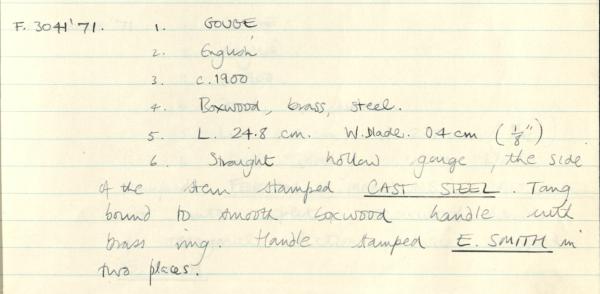 F. 3041'71. 1. GOUGE
2. English
3. c.1900
4. Boxwood, brass, steel.
5. L. 24.8 cm. W. blade. 0.4 cm (1/8")
6. Straight hollow gouge, the side
of the stem stamped CAST STEEL. Tang
bound to smooth boxwood handle with
brass ring. Handle stamped E. SMITH in
two places.